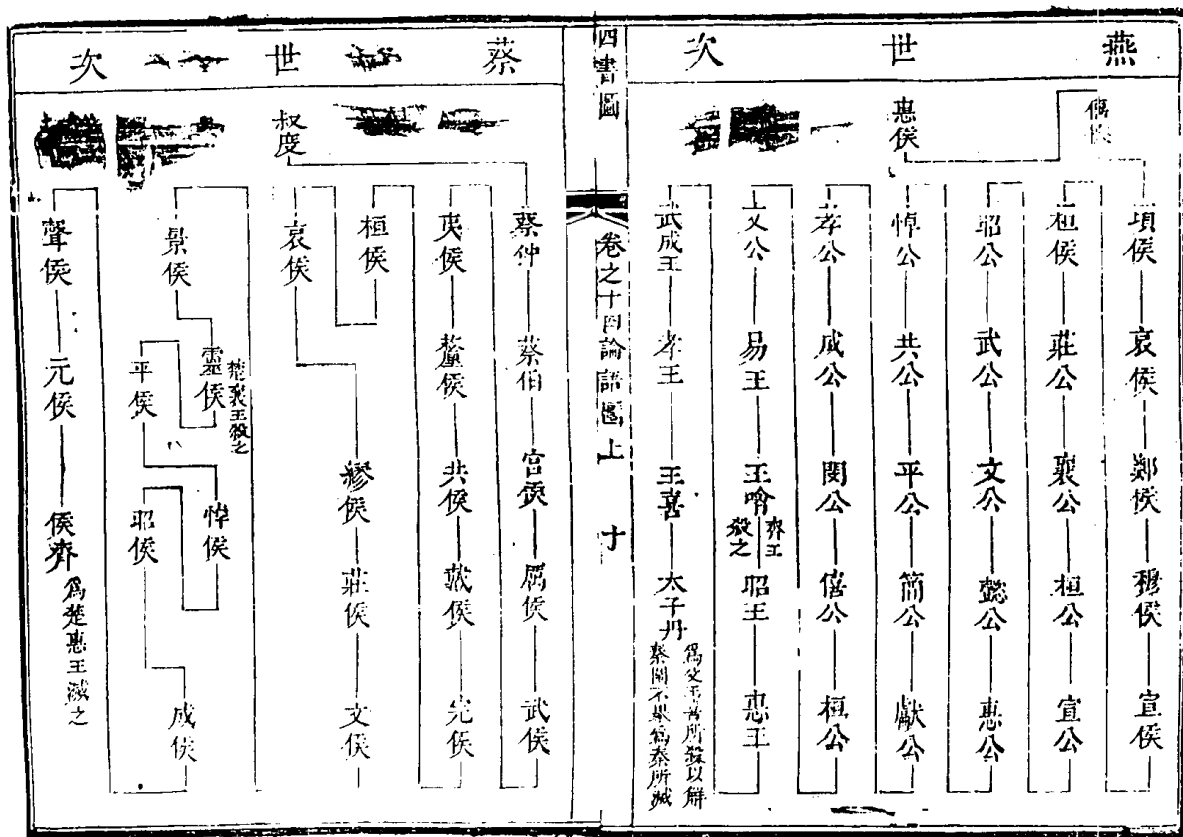 燕世次
惠侯
僖侯
頃侯 哀侯 鄭侯 穆侯 宣侯
桓侯 莊公 襄公 桓公 宣公
昭公 武公 文公 懿公 惠公
悼公 共公 平公 簡公 獻公
孝公 成公 閔公 僖公 桓公
文公 易王 王噲 齊王殺之 昭王 惠王
武成王 孝王 王喜 太子丹 爲父王喜所殺以解
秦圍不果爲秦所滅
四書圖
卷之十四論語圖上 十
蔡世次
叔度
蔡仲 蔡伯 宮侯 厲侯 武侯
夷侯 釐侯 共侯 戴侯 宣侯
桓侯
哀侯 繆侯 莊侯 文侯
景侯 靈侯 楚襄王殺之
平侯 悼侯
昭侯 成侯
聲侯 元侯 侯齊 爲楚惠王滅之